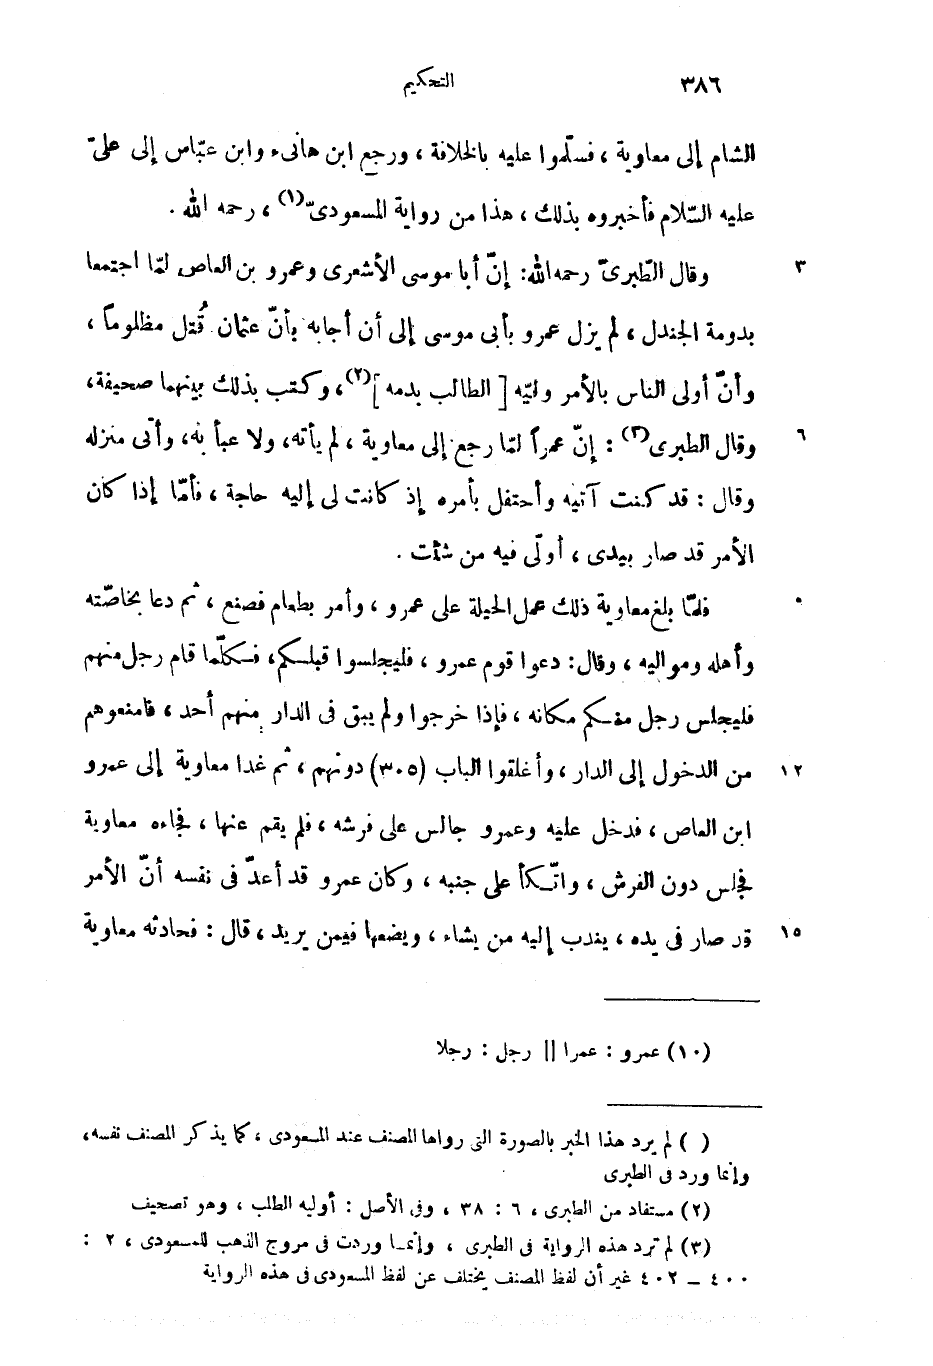 ٣٨٦ التحكيم
الشام إلى معاوية ، فسلّموا عليه بالخلافة ، ورجع ابن هانىء وابن عبّاس إلى علىّ
عليه السّلام فأخبروه بذلك ، هذا من رواية المسعودىّ(١) ، رحمه الله .
٣ وقال الطّبرىّ رحمه الله : إنّ أبا موسى الأشعرى وعمرو بن العاص لمّا اجتمعا
بدومة الجندل ، لم يزل عمرو بأبى موسى إلى أن أجابه بأنّ عثمان قُتل مظلوماً ،
وأنّ أولى الناس بالأمر وليّه [ الطالب بدمه ](٢)، وكتب بذلك بينهما صحيفة،
٦ وقال الطبرى(٣) : إنّ عمراً لمّا رجع إلى معاوية ، لم يأته، ولا عبأ به، وأتى منزله
وقال : قد كنت آتيه وأحتفل بأمره إذ كانت لى إليه حاجة ، فأمّا إذا كان
الأمر قد صار بيدى ، أولّى فيه من شئت .
٠ فلمّا بلغ معاوية ذلك عمل الحيلة على عمرو ، وأمر بطعام فصنع ، ثم دعا بخاصّته
وأهله ومواليه ، وقال : دعوا قوم عمرو ، فليجلسوا قبلكم، فكلّما قام رجل منهم
فليجلس رجل منكم مكانه ، فإذا خرجوا ولم يبق فى الدار منهم أحد ، فامنعوهم
١٢ من الدخول إلى الدار ، وأغلقوا الباب (٣٠٥) دونهم ، ثم غدا معاوية إلى عمرو
ابن العاص ، فدخل عليه وعمرو جالس على فرشه ، فلم يقم عنها ، فجاءه معاوية
فجلس دون الفرش ، واتّكأ على جنبه ، وكان عمرو قد أعدّ فى نفسه أنّ الأمر
١٥ قد صار فى يده ، يندب إليه من يشاء ، ويضعها فيمن يريد ، قال : فحادثه معاوية
(١٠) عمرو : عمرا || رجل : رجلا
( ) لم يرد هذا الخبر بالصورة التى رواها المصنف عند المسعودى ، كما يذكر المصنف نفسه،
وإنما ورد فى الطبرى
(٢) مستفاد من الطبرى ، ٦ : ٣٨ ، وفى الأصل : أوليه الطلب ، وهو تصحيف
(٣) لم ترد هذه الرواية فى الطبرى ، وإنما وردت فى مروج الذهب للمسعودى ، ٢ :
٤٠٠ – ٤٠٢ غير أن لفظ المصنف يختلف عن لفظ المسعودى فى هذه الرواية